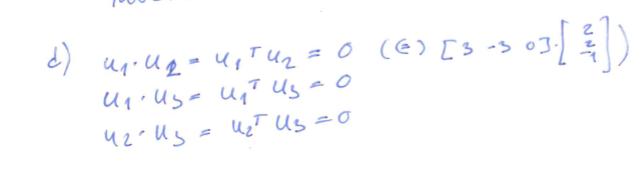 d) u₁·u₂ = u₁ᵀu₂ = 0 (∈) [3 -3 0]·[2 2 -1])
u₁·u₃ = u₁ᵀu₃ = 0
u₂·u₃ = u₂ᵀu₃ = 0